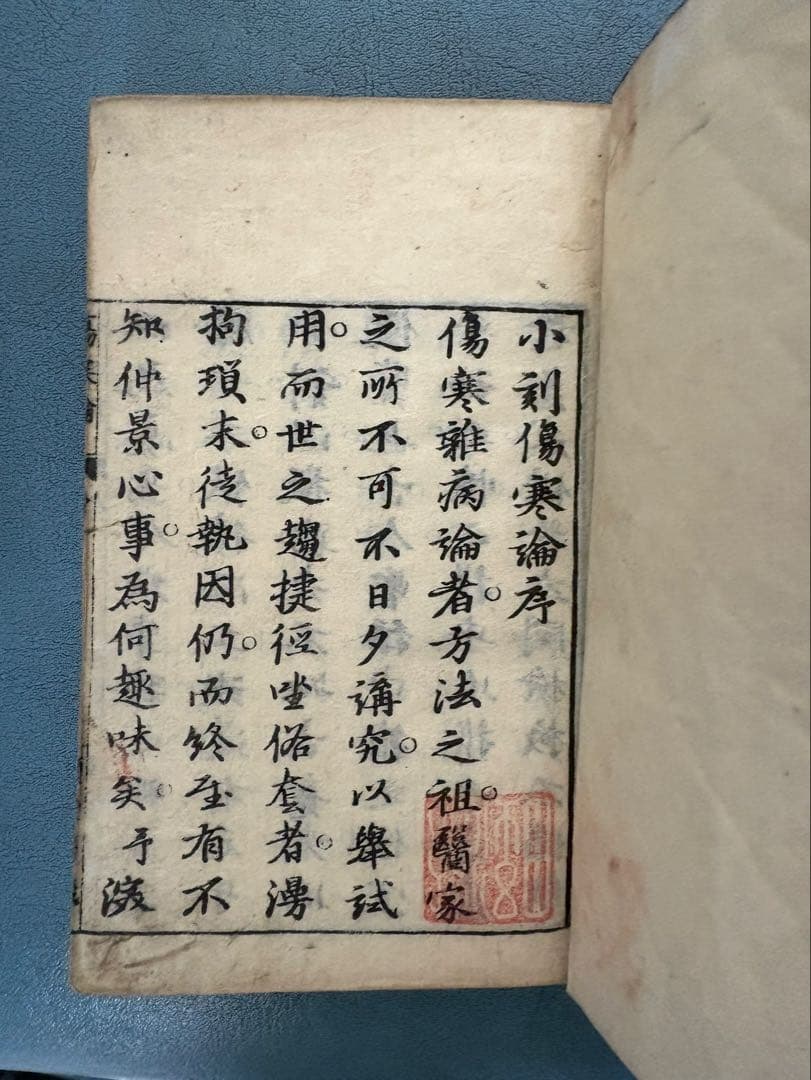 小刻傷寒論序
傷寒雜病論者。方法之祖。醫家
之所不可不日夕講究。以舉試
用。而世之趨捷徑坐俗套者。漫
拘瑣末。徒執因仍。而終至有不
知仲景心事。為何趣味矣。予